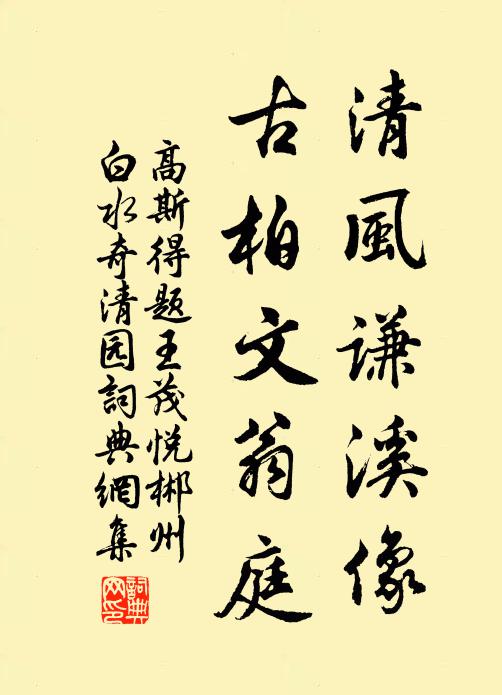 清風謙溪像
古柏文翁庭
高斯得題王茂悦郴州
白水奇清园詞典網集
詞典
网印